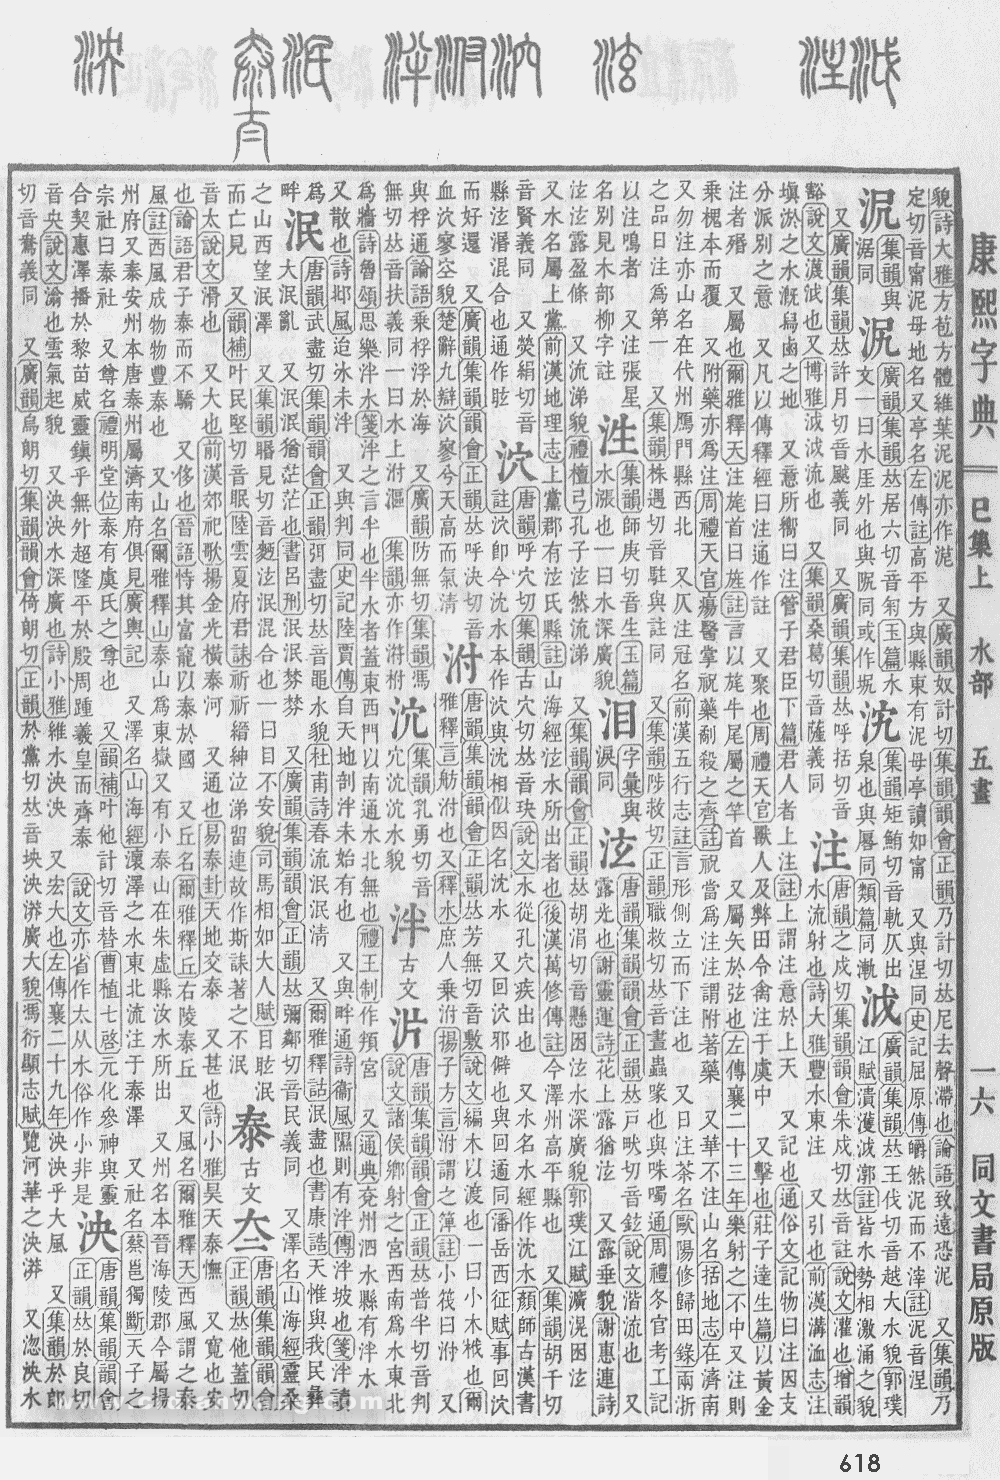 康熙字典
巳集上 水部 五畫
一六 同文書局原版
貌詩大雅方苞方體維葉泥泥亦作泥 又廣韻奴計切集韻韻會正韻乃計切𠀤尼去聲滯也論語致遠恐泥 又集韻乃
定切音甯泥母地名又亭名左傳註高平方與縣東有泥母亭讀如甯 又與涅同史記屈原傳皭然泥而不滓註泥音涅
集韻與
涺同
廣韻集韻𠀤居六切音匊玉篇水
文一曰水厓外也與阮同或作坭
集韻矩鮪切音軌仄出
泉也與厬同類篇同漸
泧
廣韻集韻𠀤王伐切音越大水貌郭璞
江賦潰濩泧漷註皆水勢相激涌之貌
又廣韻集韻𠀤許月切音颰義同 又廣韻集韻𠀤呼括切音
豁說文瀎泧也又博雅泧泧流也 又集韻桑葛切音薩義同
注
唐韻之戍切集韻韻會朱戍切𠀤音註說文灌也增韻
水流射也詩大雅豐水東注 又引也前漢溝洫志注
塡淤之水漑舄鹵之地 又意所嚮曰注管子君臣下篇君人者上注註上謂注意於上天 又記也通俗文記物曰注因支
分派別之意 又凡以傳釋經曰注通作註 又聚也周禮天官獸人及弊田令禽注于虞中 又擊也莊子達生篇以黃金
注者殙 又屬也爾雅釋天注旄首曰旌註言以旄牛尾屬之竿首 又屬矢於弦也左傳襄二十三年樂射之不中又注則
乗槐本而覆 又附藥亦爲注周禮天官瘍醫掌祝藥劀殺之齊註祝當爲注注謂附著藥 又華不注山名括地志在濟南
又勿注亦山名在代州鴈門縣西北 又仄注冠名前漢五行志註言形側立而下注也 又日注茶名歐陽修歸田錄兩浙
之品日注爲第一 又集韻株遇切音駐與註同 又集韻陟救切正韻職救切𠀤音晝蟲喙也與咮噣通周禮冬官考工記
以注鳴者 又注張星
名別見木部柳字註
泩
集韻師庚切音生玉篇
水漲也一曰水深廣貌
泪
字彙與
淚同
泫
唐韻集韻韻會正韻𠀤戸畎切音鉉說文湝流也 又
露光也謝靈運詩花上露猶泫 又露垂貌謝惠連詩
泫泫露盈條 又流涕貌禮檀弓孔子泫然流涕 又集韻韻會正韻𠀤胡涓切音懸困泫水深廣貌郭璞江賦澒滉困泫
又水名屬上黨前漢地理志上黨郡有泫氏縣註山海經泫水所出者也後漢萬修傳註今澤州高平縣也 又集韻胡千切
音賢義同 又熒絹切音
縣泫潛混合也通作眩
泬
唐韻呼穴切集韻古穴切𠀤音玦說文水從孔穴疾出也 又水名水經作沈水顏師古漢書
註泬卽今泬水本作泬與沈相似因名沈水 又回泬邪僻也與回遹同潘岳西征賦事回泬
而好還 又廣韻集韻韻會正韻𠀤呼決切音
血泬寥空貌楚辭九辯泬寥兮天高而氣清
泭
唐韻集韻韻會正韻𠀤芳無切音敷說文編木以渡也一曰小木栰也爾
雅釋言舫泭也又釋水庶人乗泭揚子方言泭謂之簰註小筏曰泭 又
與桴通論語乗桴浮於海 又廣韻防無切集韻馮
無切𠀤音扶義同一曰水上泭漚 集韻亦作涪柎
集韻孔勇切音
泬泬水貌
泮
古文
唐韻集韻韻會正韻𠀤普半切音判
說文諸侯鄕射之宮西南爲水東北
爲牆詩魯頌思樂泮水箋泮之言半也半水者蓋東西門以南通水北無也禮王制作頖宮 又通典兗州泗水縣有泮水
又散也詩邶風迨冰未泮 又與判同史記陸賈傳自天地剖泮未始有也 又與畔通詩衞風隰則有泮傳泮坡也箋泮讀
爲
畔
泯
唐韻武盡切集韻韻會正韻弭盡切𠀤音黽水貌杜甫詩春流泯泯淸 又爾雅釋詁泯盡也書康誥天惟與我民彝
大泯亂 又泯泯猶茫茫也書呂刑泯泯棼棼 又廣韻集韻韻會正韻𠀤彌鄰切音民義同 又澤名山海經靈桑
之山西望泯澤 又集韻𥈼見切音麪泫泯混合也一曰目不安貌司馬相如大人賦目眩泯
而亡見 又韻補叶民堅切音眠陸雲夏府君誄祈祈縉紳泣涕留連故作斯誄著之不泯
泰
古文
唐韻集韻韻會
正韻𠀤他蓋切
音太說文滑也 又大也前漢郊祀歌揚金光橫泰河 又通也易泰卦天地交泰 又甚也詩小雅昊天泰憮 又寬也安
也論語君子泰而不驕 又侈也晉語恃其富寵以泰於國 又丘名爾雅釋丘右陵泰丘 又風名爾雅釋天西風謂之泰
風註西風成物物豐泰也 又山名爾雅釋山泰山爲東嶽又有小泰山在朱虛縣汶水所出 又州名本晉海陵郡今屬揚
州府又泰安州本唐泰州屬濟南府俱見廣輿記 又澤名山海經澤之水東北流注于泰澤 又社名蔡邕獨斷天子之
宗社曰泰社 又尊名禮明堂位泰有虞氏之尊也 又韻補叶他計切音替曹植七啓元化參神與靈
合契惠澤播於黎苗威靈鎭乎無外超隆平於殷周踵羲皇而齊泰 說文亦省作太从水俗作小非是
泱
唐韻集韻韻會
正韻𠀤於良切
音央說文滃也雲氣起貌 又泱泱水深廣也詩小雅維水泱泱 又宏大也左傳襄二十九年泱泱乎大風 又集韻於郎
切音鴦義同 又廣韻烏朗切集韻韻會倚朗切正韻於黨切𠀤音坱泱漭廣大貌馮衍顯志賦覽河華之泱漭 又㴔泱水
618